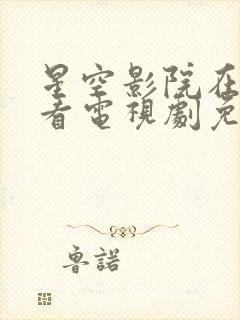 星空影院在
看電視劇免
魯諾